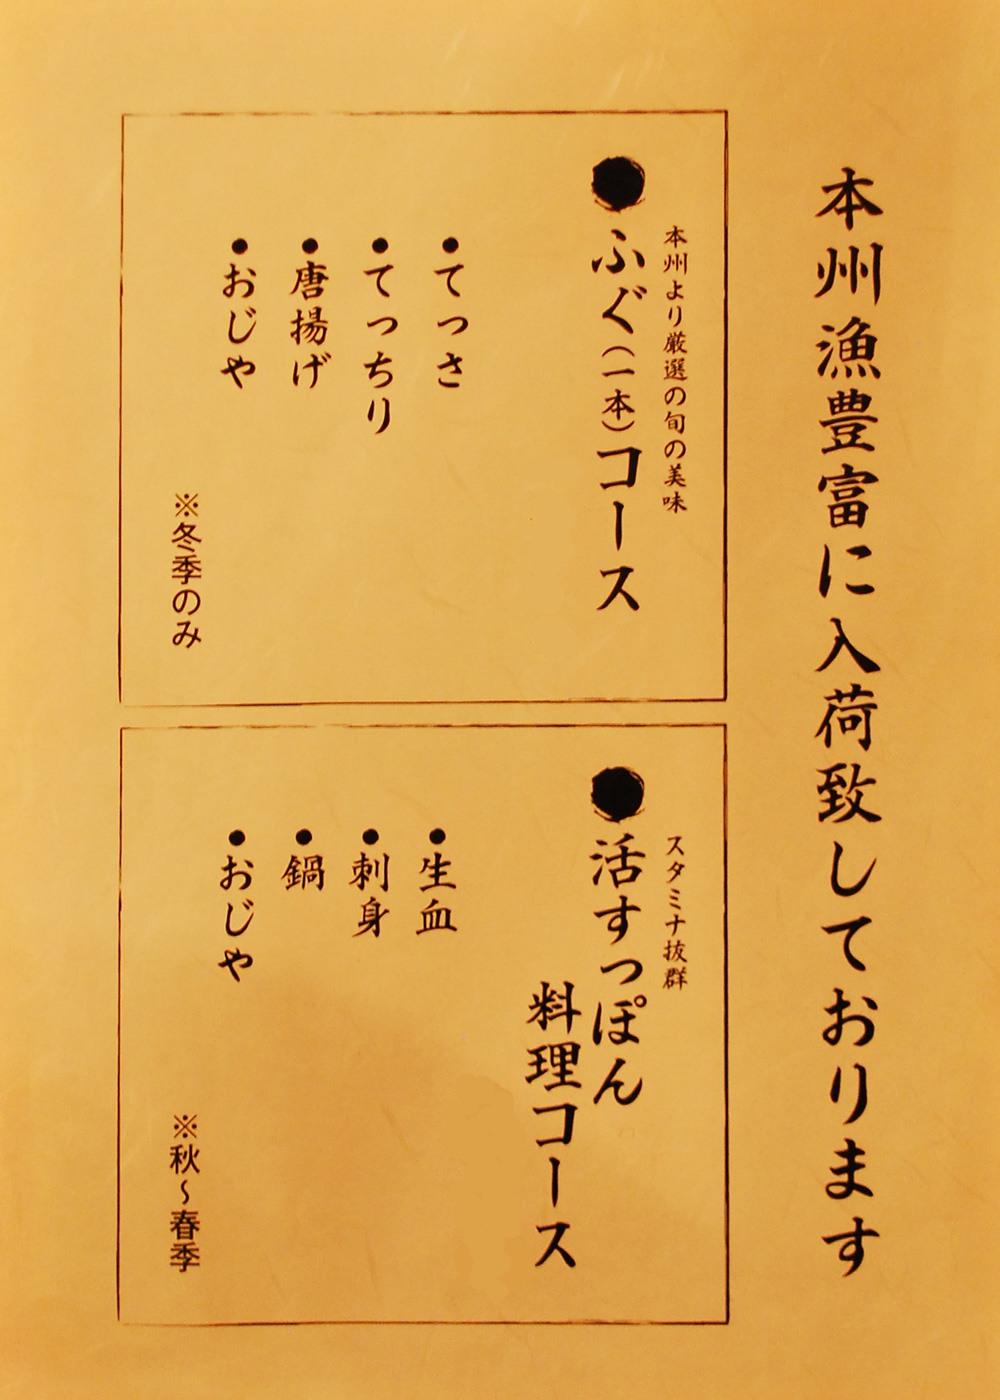 本州漁豊富に入荷致しております
本州より厳選の旬の美味
●ふぐ（一本）コース
●てっさ
●てっちり
●唐揚げ
●おじや
※冬季のみ
スタミナ抜群
●活すっぽん
料理コース
●生血
●刺身
●鍋
●おじや
※秋～春季